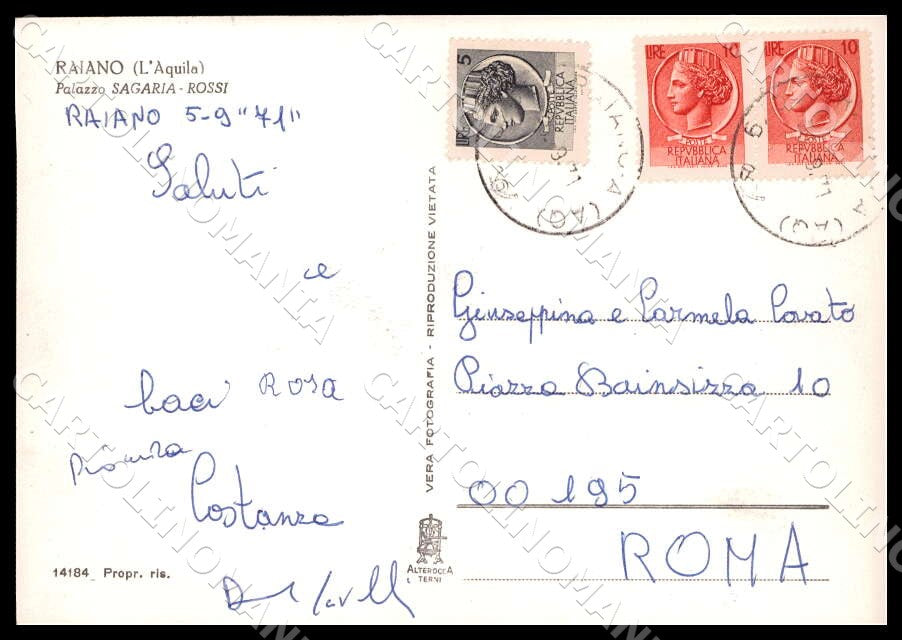 RAIANO (L'Aquila)
Palazzo SAGARIA - ROSSI
RAIANO 5-9 "71"
Saluti
e
baci ROSA
Costanza
14184 Propr. ris.
VERA FOTOGRAFIA - RIPRODUZIONE VIETATA
ALTEROCCA
TERNI
LIRE 5
REPVBBLICA
ITALIANA
LIRE 10
POSTE
REPVBBLICA
ITALIANA
LIRE 10
POSTE
REPVBBLICA
ITALIANA
(AQ)
(AQ)
Giuseppina e Carmela Covato
Piazza Bainsizza 10
00195
ROMA
CARTOLINOMANIA